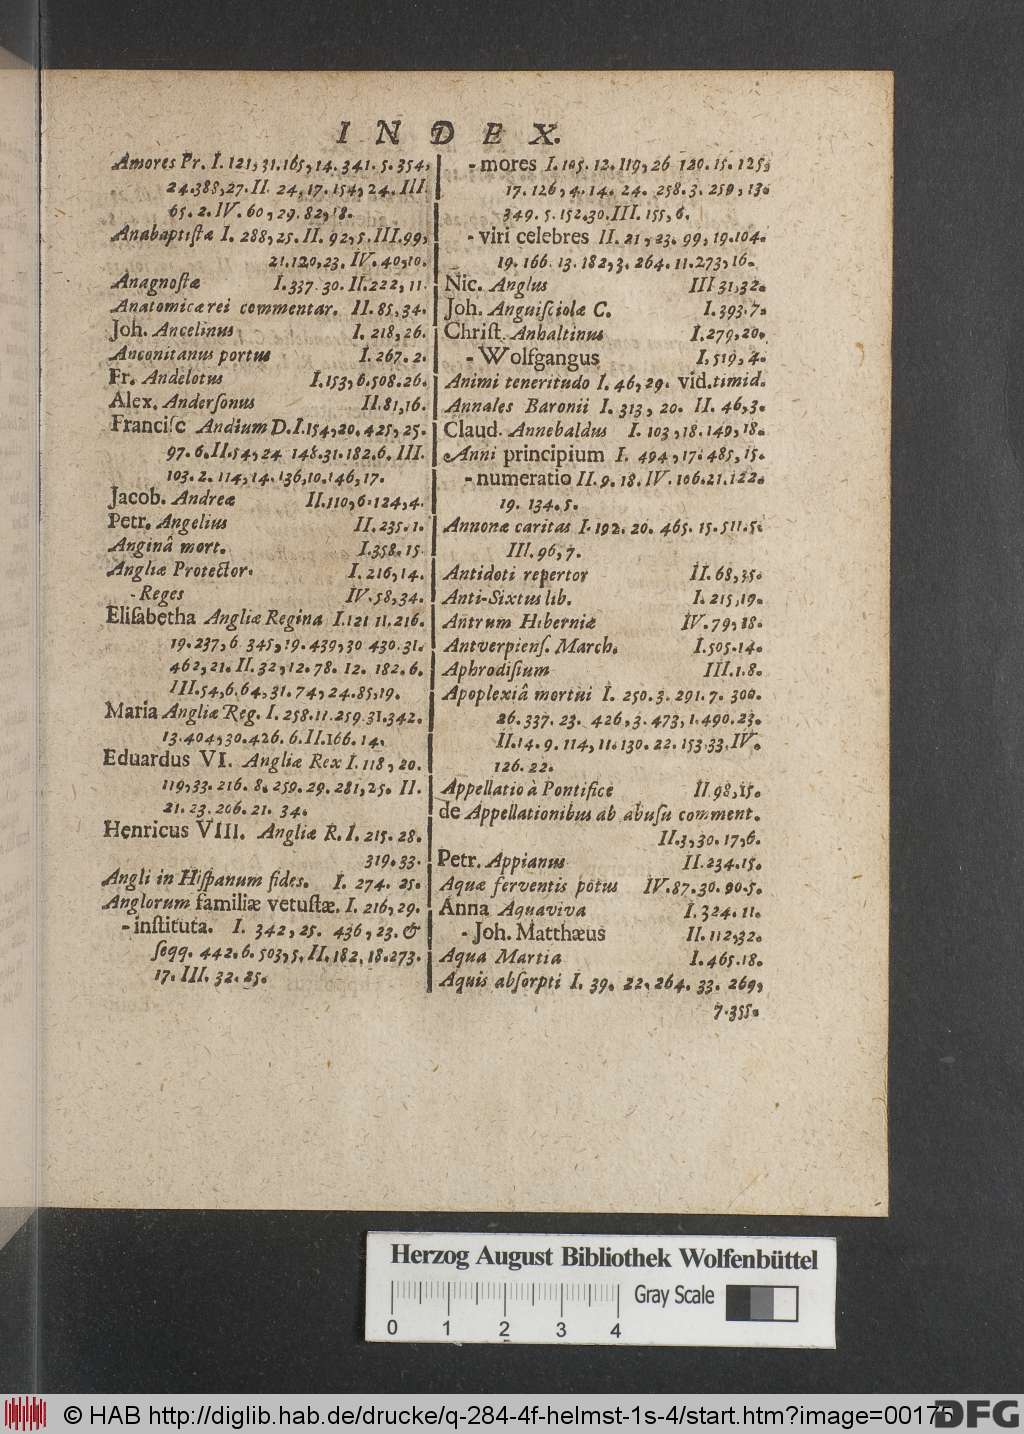 INDEX.
Amores Pr. I. 121, 31. 165, 14. 341. 5. 354,
24. 388, 27. II. 24, 17. 154, 24. III.
65. 2. IV. 60, 29. 82, 18.
Anabaptiſtæ I. 288, 25. II. 92, 5. III. 99,
21. 120, 23. IV. 40, 10.
Anagnoſtæ I. 337. 30. II. 222, 11.
Anatomicæ rei commentar. II. 85, 34.
Joh. Ancelinus I. 218, 26.
Anconitanus portus I. 267. 2.
Fr. Andelotus I. 153, 6. 508. 26.
Alex. Anderſonus II. 81, 16.
Franciſc Andium D. I. 154, 20. 425, 25.
97. 6. II. 54, 24 148. 31. 182. 6. III.
103. 2. 114, 14. 136, 10. 146, 17.
Jacob. Andreæ II. 110, 6. 124, 4.
Petr. Angelius II. 235. 1.
Anginâ mort. I. 358. 15.
Angliæ Protector. I. 216, 14.
- Reges IV. 58, 34.
Eliſabetha Angliæ Regina I. 121 11. 216.
19. 237, 6 345, 19. 439, 30 430. 31.
462, 21. II. 32, 12. 78. 12. 182. 6.
III. 54, 6. 64, 31. 74, 24. 85, 19.
Maria Angliæ Reg. I. 258. 11. 259. 31. 342.
13. 404, 30. 426. 6. II. 166. 14.
Eduardus VI. Angliæ Rex I. 118, 20.
119, 33. 216. 8. 259. 29. 281, 25. II.
21. 23. 206. 21. 34.
Henricus VIII. Angliæ R. I. 215. 28.
319. 33.
Angli in Hiſpanum fides. I. 274. 25.
Anglorum familiæ vetuſtæ. I. 216, 29.
- inſtituta. I. 342, 25. 436, 23. &
ſeqq. 442. 6. 503, 5. II. 182, 18. 273.
17. III. 32. 25.
- mores I. 105. 12. 119, 26 120. 15. 125,
17. 126, 4. 14. 24. 258. 3. 259, 13.
349. 5. 152. 30. III. 155, 6.
- viri celebres II. 21, 23. 99, 19. 104.
19. 166. 13. 182, 3. 264. 11. 273, 16.
Nic. Anglus III 31, 32.
Joh. Anguiſciolæ C. I. 393. 7.
Chriſt. Anhaltinus I. 279, 20.
- Wolfgangus I, 519, 4.
Animi teneritudo I. 46, 29. vid. timid.
Annales Baronii I. 313, 20. II. 46, 3.
Claud. Annebaldus I. 103, 18. 149, 18.
Anni principium I. 494, 17. 485, 15.
- numeratio II. 9. 18. IV. 106. 21. 122.
19. 134. 5.
Annonæ caritas I. 192. 20. 465. 15. 511. 5.
III. 96, 7.
Antidoti repertor II. 68, 35.
Anti-Sixtus lib. I. 215, 19.
Antrum Hiberniæ IV. 79, 18.
Antverpienſ. March. I. 505. 14.
Aphrodiſium III. 1. 8.
Apoplexiâ mortui I. 250. 3. 291. 7. 300.
26. 337. 23. 426, 3. 473, 1. 490. 23.
II. 14. 9. 114, 11. 130. 22. 153. 33. IV.
126. 22.
Appellatio à Pontifice II. 98, 15.
de Appellationibus ab abuſu comment.
II. 3, 30. 17, 6.
Petr. Appianus II. 234. 15.
Aquæ ferventis potus IV. 87. 30. 90. 5.
Anna Aquaviva I. 324. 11.
- Joh. Matthæus II. 112, 32.
Aqua Martia I. 465. 18.
Aquis abſorpti I. 39. 22, 264. 33. 269,
7. 355.
Herzog August Bibliothek Wolfenbüttel
Gray Scale
0 1 2 3 4
© HAB http://diglib.hab.de/drucke/q-284-4f-helmst-1s-4/start.htm?image=00175
DFG